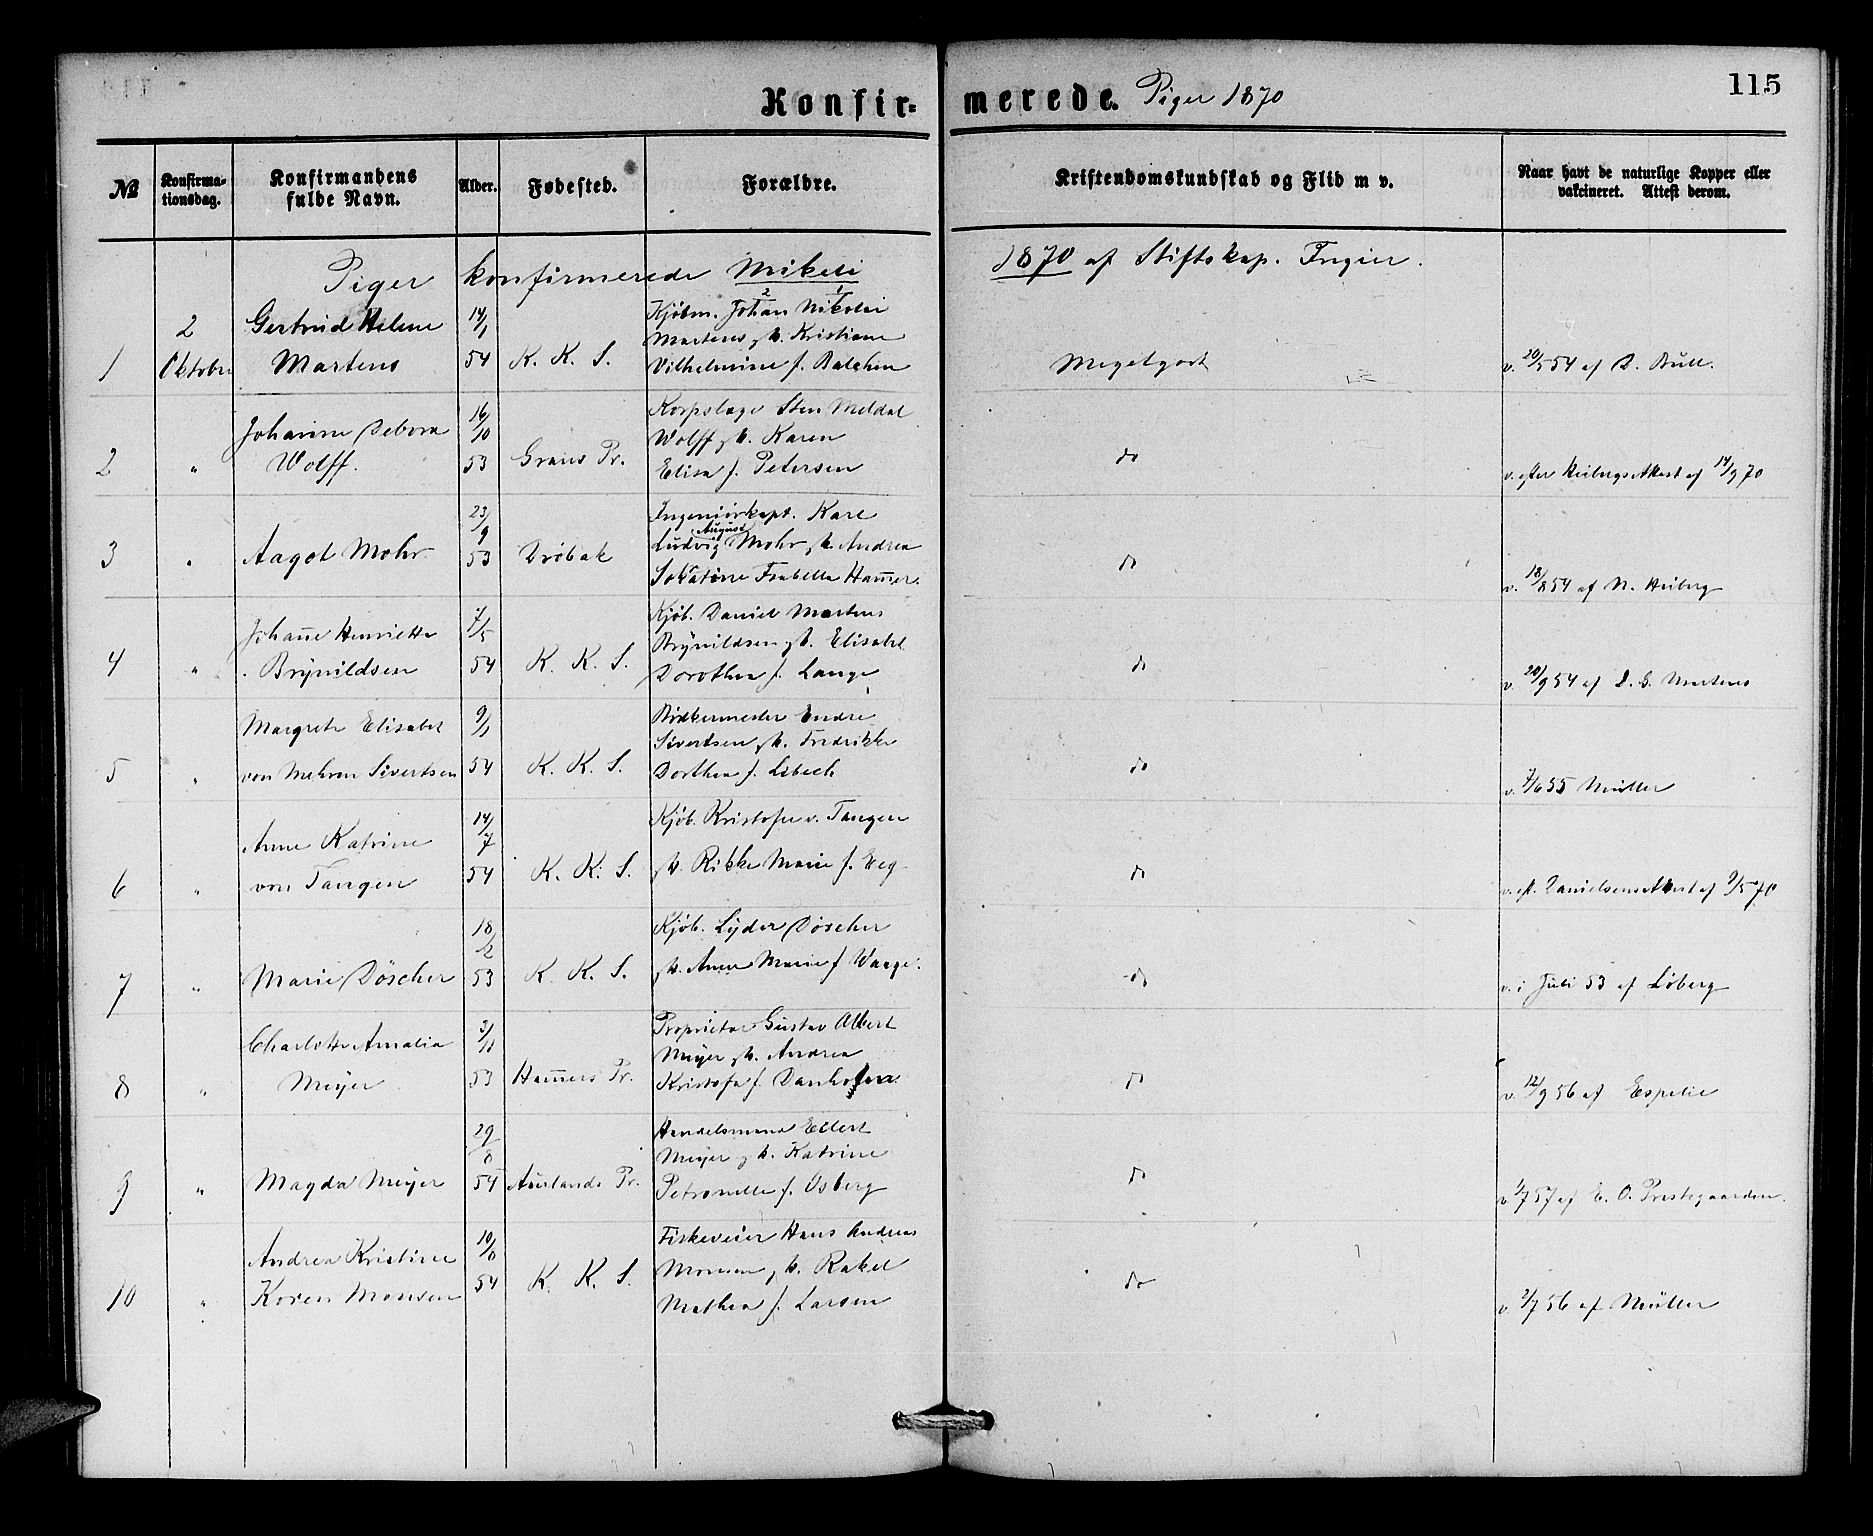 Konfir=
merede. Piger 1870
115
№
Konfirma=
tionsdag.
Konfirmandens
fulde Navn.
Alder.
Fødested.
Forældre.
Kristendomskundskab og Flid m v.
Naar havt de naturlige Kopper eller
vakcineret. Attest derom.
Piger konfirmerede Mikeli 1870 af Stiftskap.
1
2
Oktober
Gertrud Helene
Martens
14/1
54
K. K. S.
Kjøbm. Johan Nikolai
Martens & Kristiane
Vilhelmine f. Balchen
Megetgodt
v. 20/5 54 af D. Bull.
2
"
Johanne Debora
Wolff.
16/10
53
Grans Pr.
Korpslæge Sten Meldal
Wolff & Karen
Elisa f. Petersen
do
v. efter Heibergs Attest af 14/9 70
3
"
Aagot Mohr
23/9
53
Drøbak
Ingeniørkapt. Karl
Ludvig August Mohr & Andrea
Isabella Ham̄er.
do
v. 18/8 54 af N. Heiberg
4
"
Johan̄e Henriette
Brynildsen
7/5
54
K. K. S.
Kjøb. Daniel Martens
Brynildsen & Elisabet
Dorothea f. Lange
do
v. 20/9 54 af Martens
5
"
Margrete Elisabet
von Mehren Sivertsen
9/1
54
K. K. S.
Bødkermester Endre
Sivertsen & Fredrikke
Dorthea f. Libech
do
v. 7/6 55 Müller
6
"
Anne Katrine
von Tangen
14/7
54
K. K. S.
Kjøb. Kristofer v. Tangen
& Rikke Marie f. Eeg
do
v. eft. Danielsens Attest af 9/5 70
7
"
Marie Döscher
18/12
53
K. K. S.
Kjøb. Lyder Döscher
& Anne Marie f Waage.
do
v. i Juli 53 af Löberg
8
"
Charlotte Amalia
Meyer
3/11
53
Ham̄ers Pr.
Proprietær Gustav Albert
Meyer & Andrea
Kristofa f.
do
v. 12/9 56 af Espelie
9
"
Magda Meyer
29/8
54
Aurlands Pr.
Handelsmand Ellert
Meyer & Katrine
Petronelle f. Osberg
do
v 1/7 57 af E. O. Prestegaarden.
10
"
Andrea Kristine
Koren Monsen
10/8
54
K. K. S.
Fiskeveier Hans Andreas
Monsen & Rakel
Mathea f. Larsen
do
v. 2/7 56 af Müller